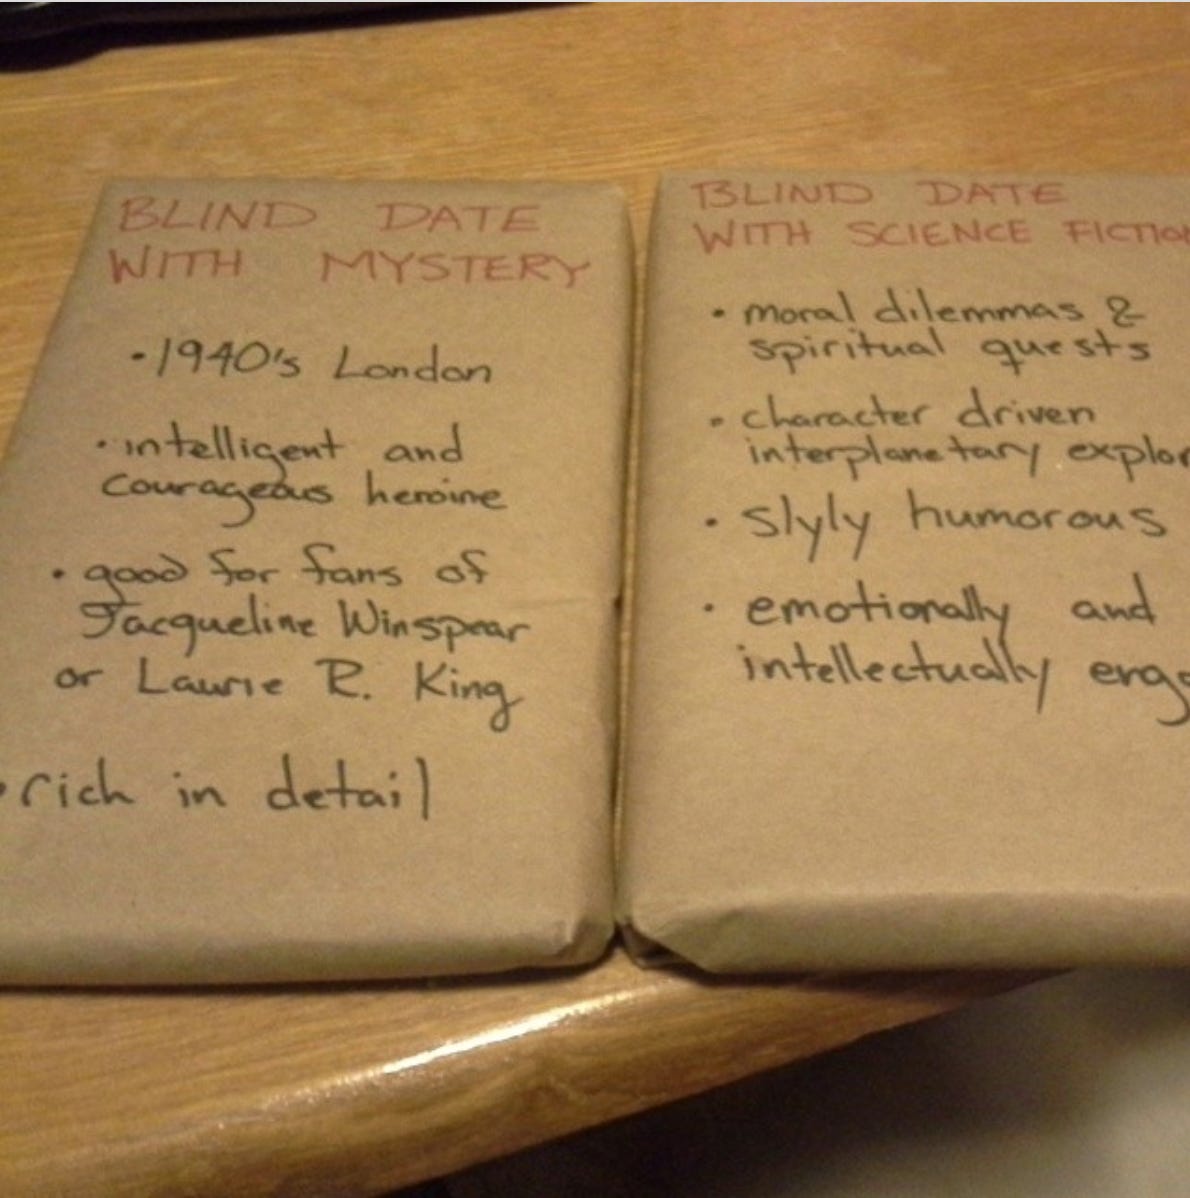 BLIND DATE
WITH MYSTERY
•1940's London
•intelligent and
courageous heroine
•good for fans of
Jacqueline Winspear
or Laurie R. King
•rich in detail
BLIND DATE
WITH SCIENCE FICTION
•moral dilemmas &
spiritual quests
•character driven
interplanetary explor
•slyly humorous
•emotionally and
intellectually eng